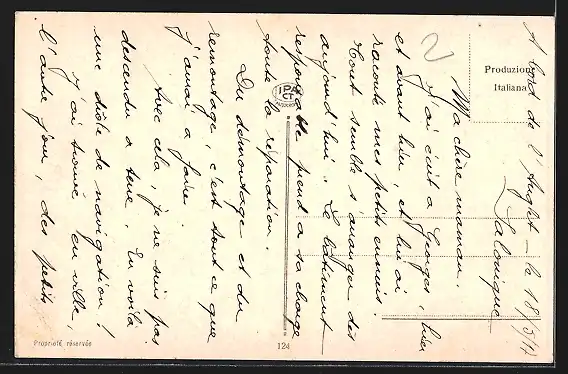 A bord de l'Anglet - le 18/5/17
Salonique
Ma chère maman.
J'ai écrit a Georges, hier
et avant hier, et lui ai
raconté mes petits ennuis.
Tout semble s'arranger dès
aujourd'hui. Le bâtiment
responsable prend a sa charge
toute la réparation.
Du démontage et du
remontage, c'est tout ce que
j'aurai a faire.
Avec cela, je ne suis pas
descendu a terre. En voilà
une drôle de navigation!
J'ai trouvé en ville,
l'autre jour, des petits
Produzione
Italiana
IPA
CT
Propriété réservée
124